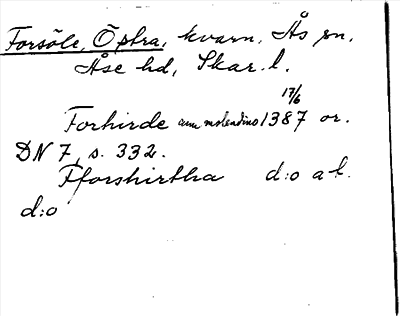 Forsöle, Östra, kvarn, Ås sn.
Åse hd, Skar. l.
17/6
Forhirde cum molendino 1387 or.
DN 7, s. 332.
Fforshirtha d:o a l.
d:o